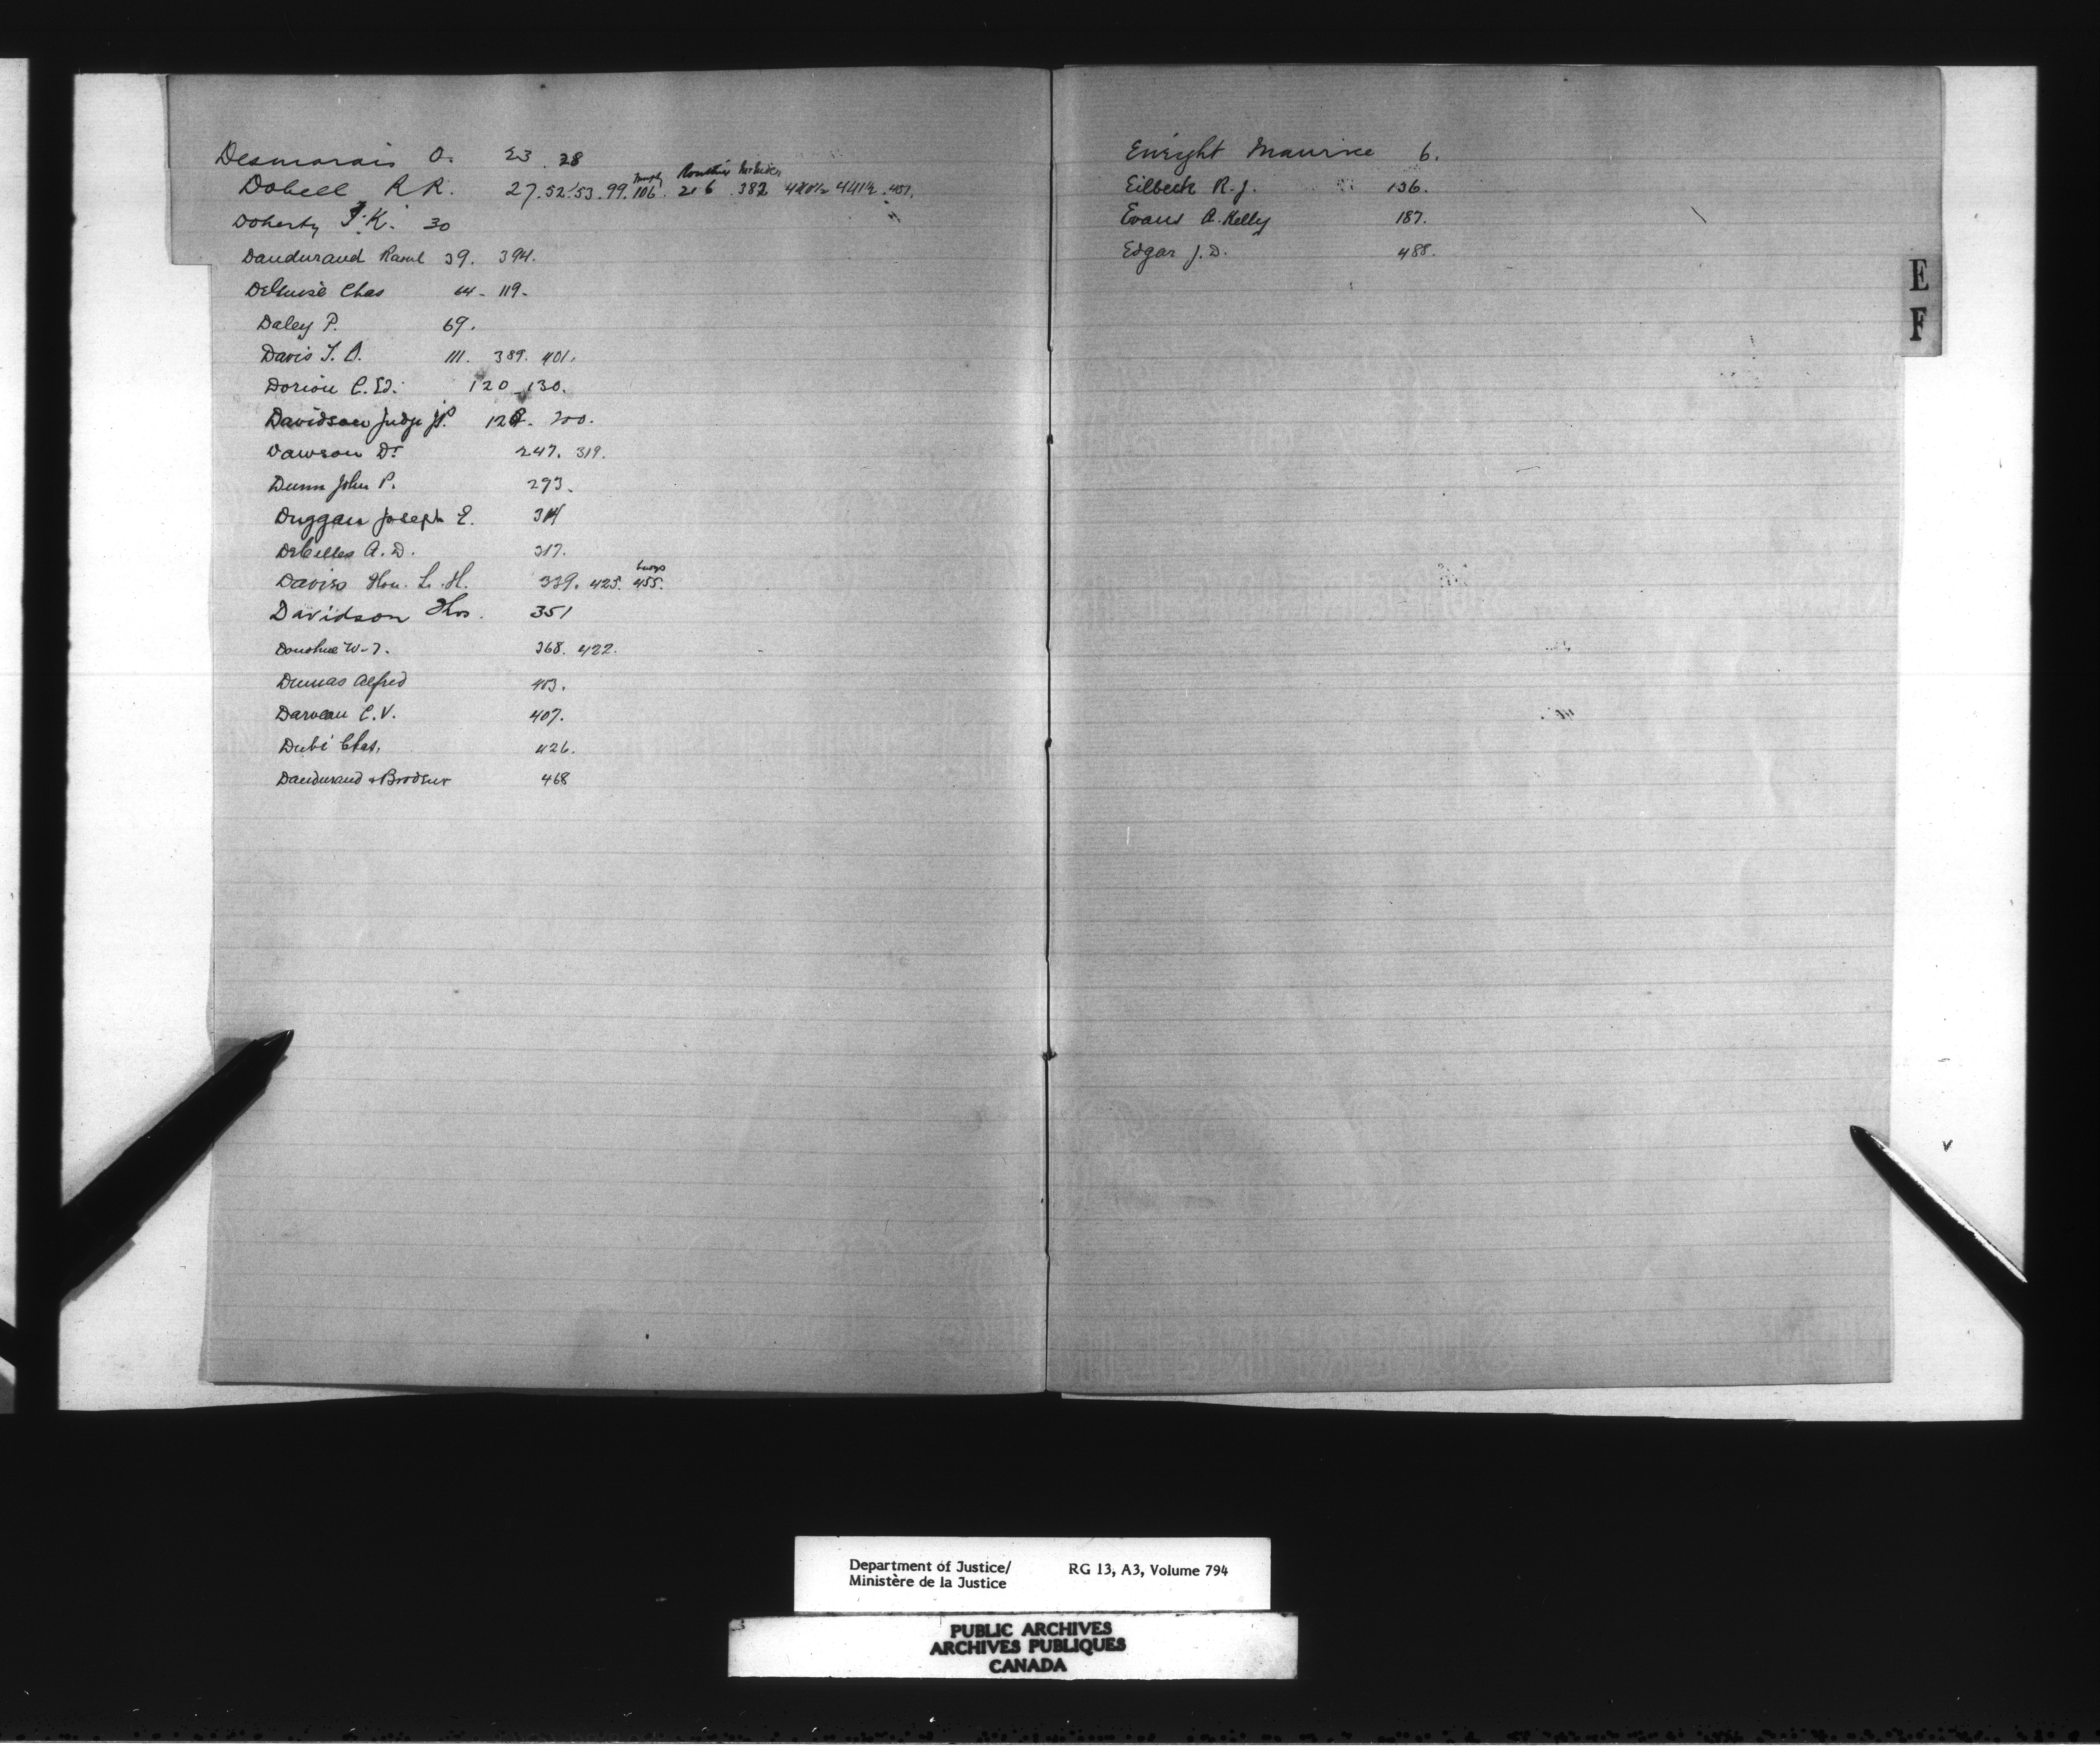 Desmarais O. 23. 28
Dobell R R. 27. 52. 53. 99. 106. 216. 382 440½ 441½. 451.
Doherty J. K. 30
Dandurand Raoul 39. 394.
DeGuise Chas 64 - 119.
Daley P. 69.
Davis T. O. 111. 389. 401.
Dorion C. Ed. 120 - 130.
Davidson Judge J.P. 128. 200.
Dawson Dr 247. 319.
Dunn John P. 293.
Duggan Joseph E. 314
DeCelles A. D. 317.
Davies Hon. L. H. 339. 425. 455.
Davidson Thos. 351
Donohue W. T. 368. 422.
Dumas Alfred 403.
Darveau C. V. 407.
Dubé Chas. 426.
Dandurand & Brodeur 468
Enright Maurice 6.
Eilbeck R. J. 136.
Evans A. Kelly 187.
Edgar J. D. 488.
E
F
Department of Justice/ RG 13, A3, Volume 794
Ministère de la Justice
PUBLIC ARCHIVES
ARCHIVES PUBLIQUES
CANADA